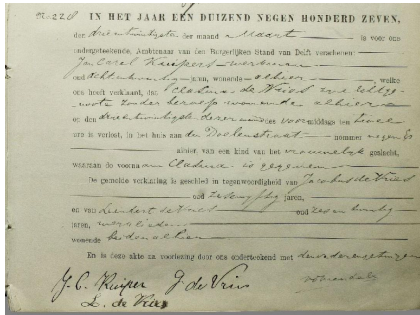 No 228 IN HET JAAR EEN DUIZEND NEGEN HONDERD ZEVEN,
den drieentwintigste der maand Maart is voor ons
ondergeteekende, Ambtenaar van den Burgerlijken Stand van Delft verschenen:
Jan Carel Kuipers werkman
oud achtentwintig jaren, wonende alhier, welke
ons heeft verklaard, dat Clasina de Vries zijne echtge-
noote zonder beroep wonende alhier
op den drieentwintigste dezer maand des voormiddags ten twee
ure is verlost, in het huis aan de Doelenstraat nommer negen
alhier, van een kind van het vrouwelijk geslacht,
waaraan de voornaam Clasina is gegeven
De gemelde verklaring is geschied in tegenwoordigheid van Jacobus de Vries
oud jaren,
en van Leendert de Vries oud zesentwintig
jaren, werklieden
wonende beiden alhier
En is deze akte na voorlezing door ons onderteekend met den vader en getuigen
J. C. Kuiper J. de Vries
L. de Vries